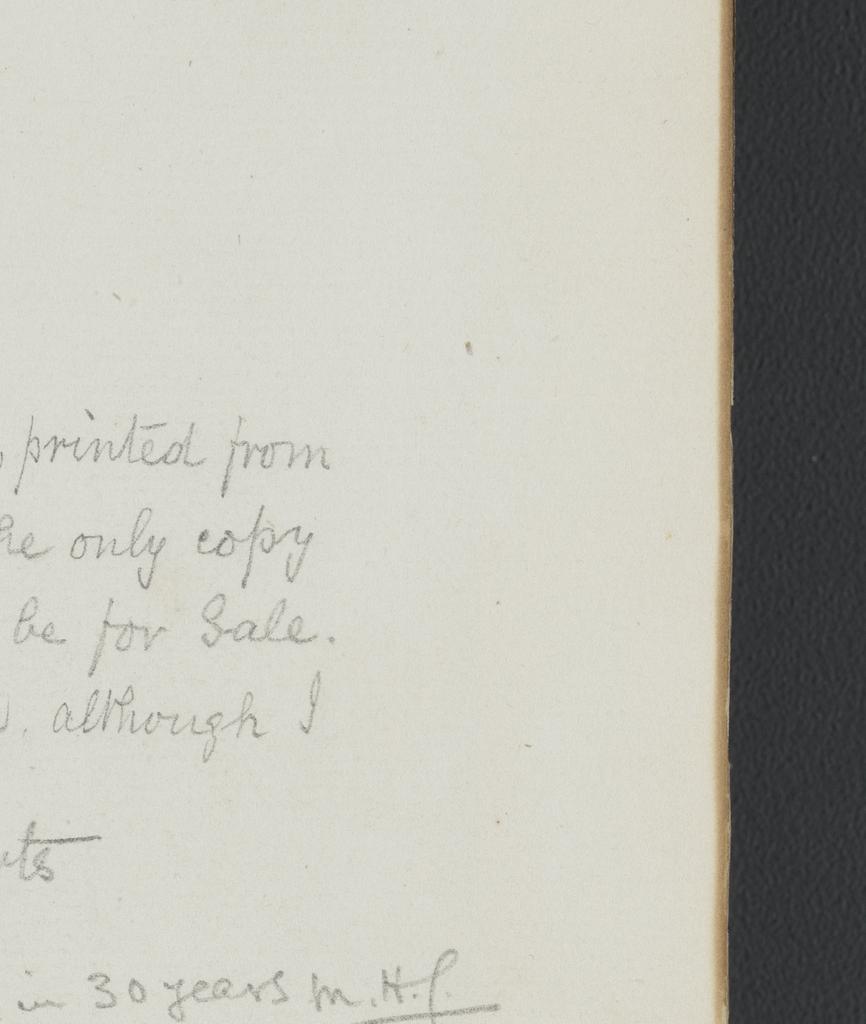 printed from
he only copy
be for Sale.
. although I
ts
in 30 years M.H.S.